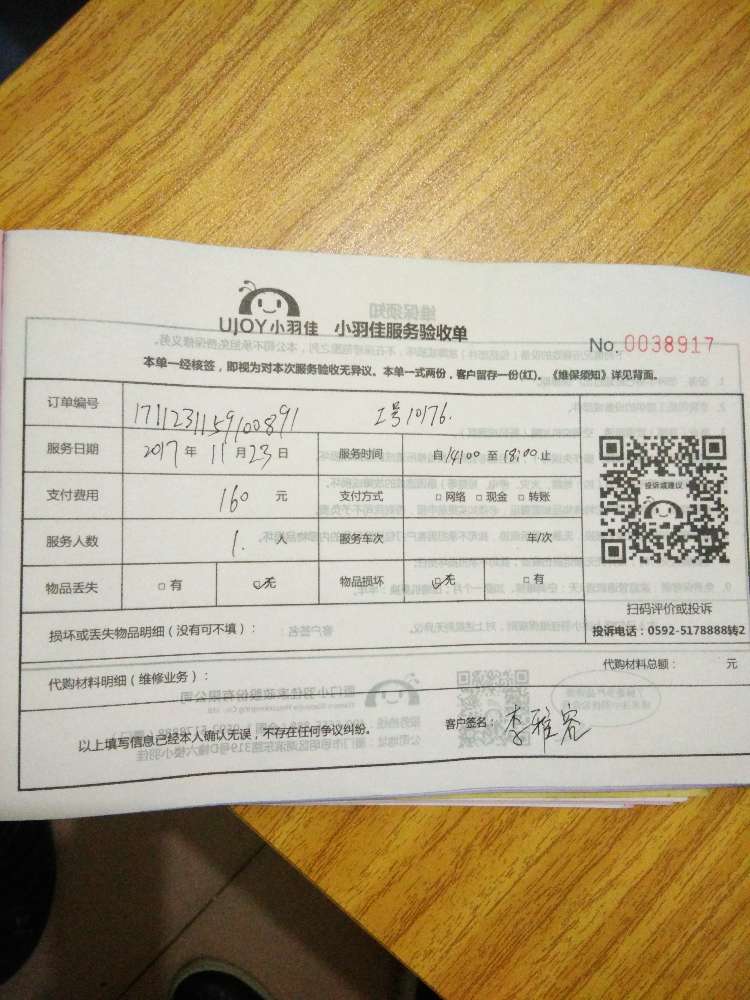 UJOY小羽佳 小羽佳服务验收单
No. 0038917
本单一经核签，即视为对本次服务验收无异议。本单一式两份，客户留存一份(红)。《维保须知》详见背面。
订单编号 1711231159100891 工号10176.
服务日期 2017年11月23日 服务时间 自14:00至18:00止
支付费用 160 元 支付方式 □网络 □现金 □转账
服务人数 1. 人 服务车次 车/次
物品丢失 □有 ☑无 物品损坏 ☑无 □有
投诉或建议
扫码评价或投诉
投诉电话：0592-5178888转2
损坏或丢失物品明细（没有可不填）：
代购材料明细（维修业务）： 代购材料总额： 元
以上填写信息已经本人确认无误，不存在任何争议纠纷。 客户签名：李雅容